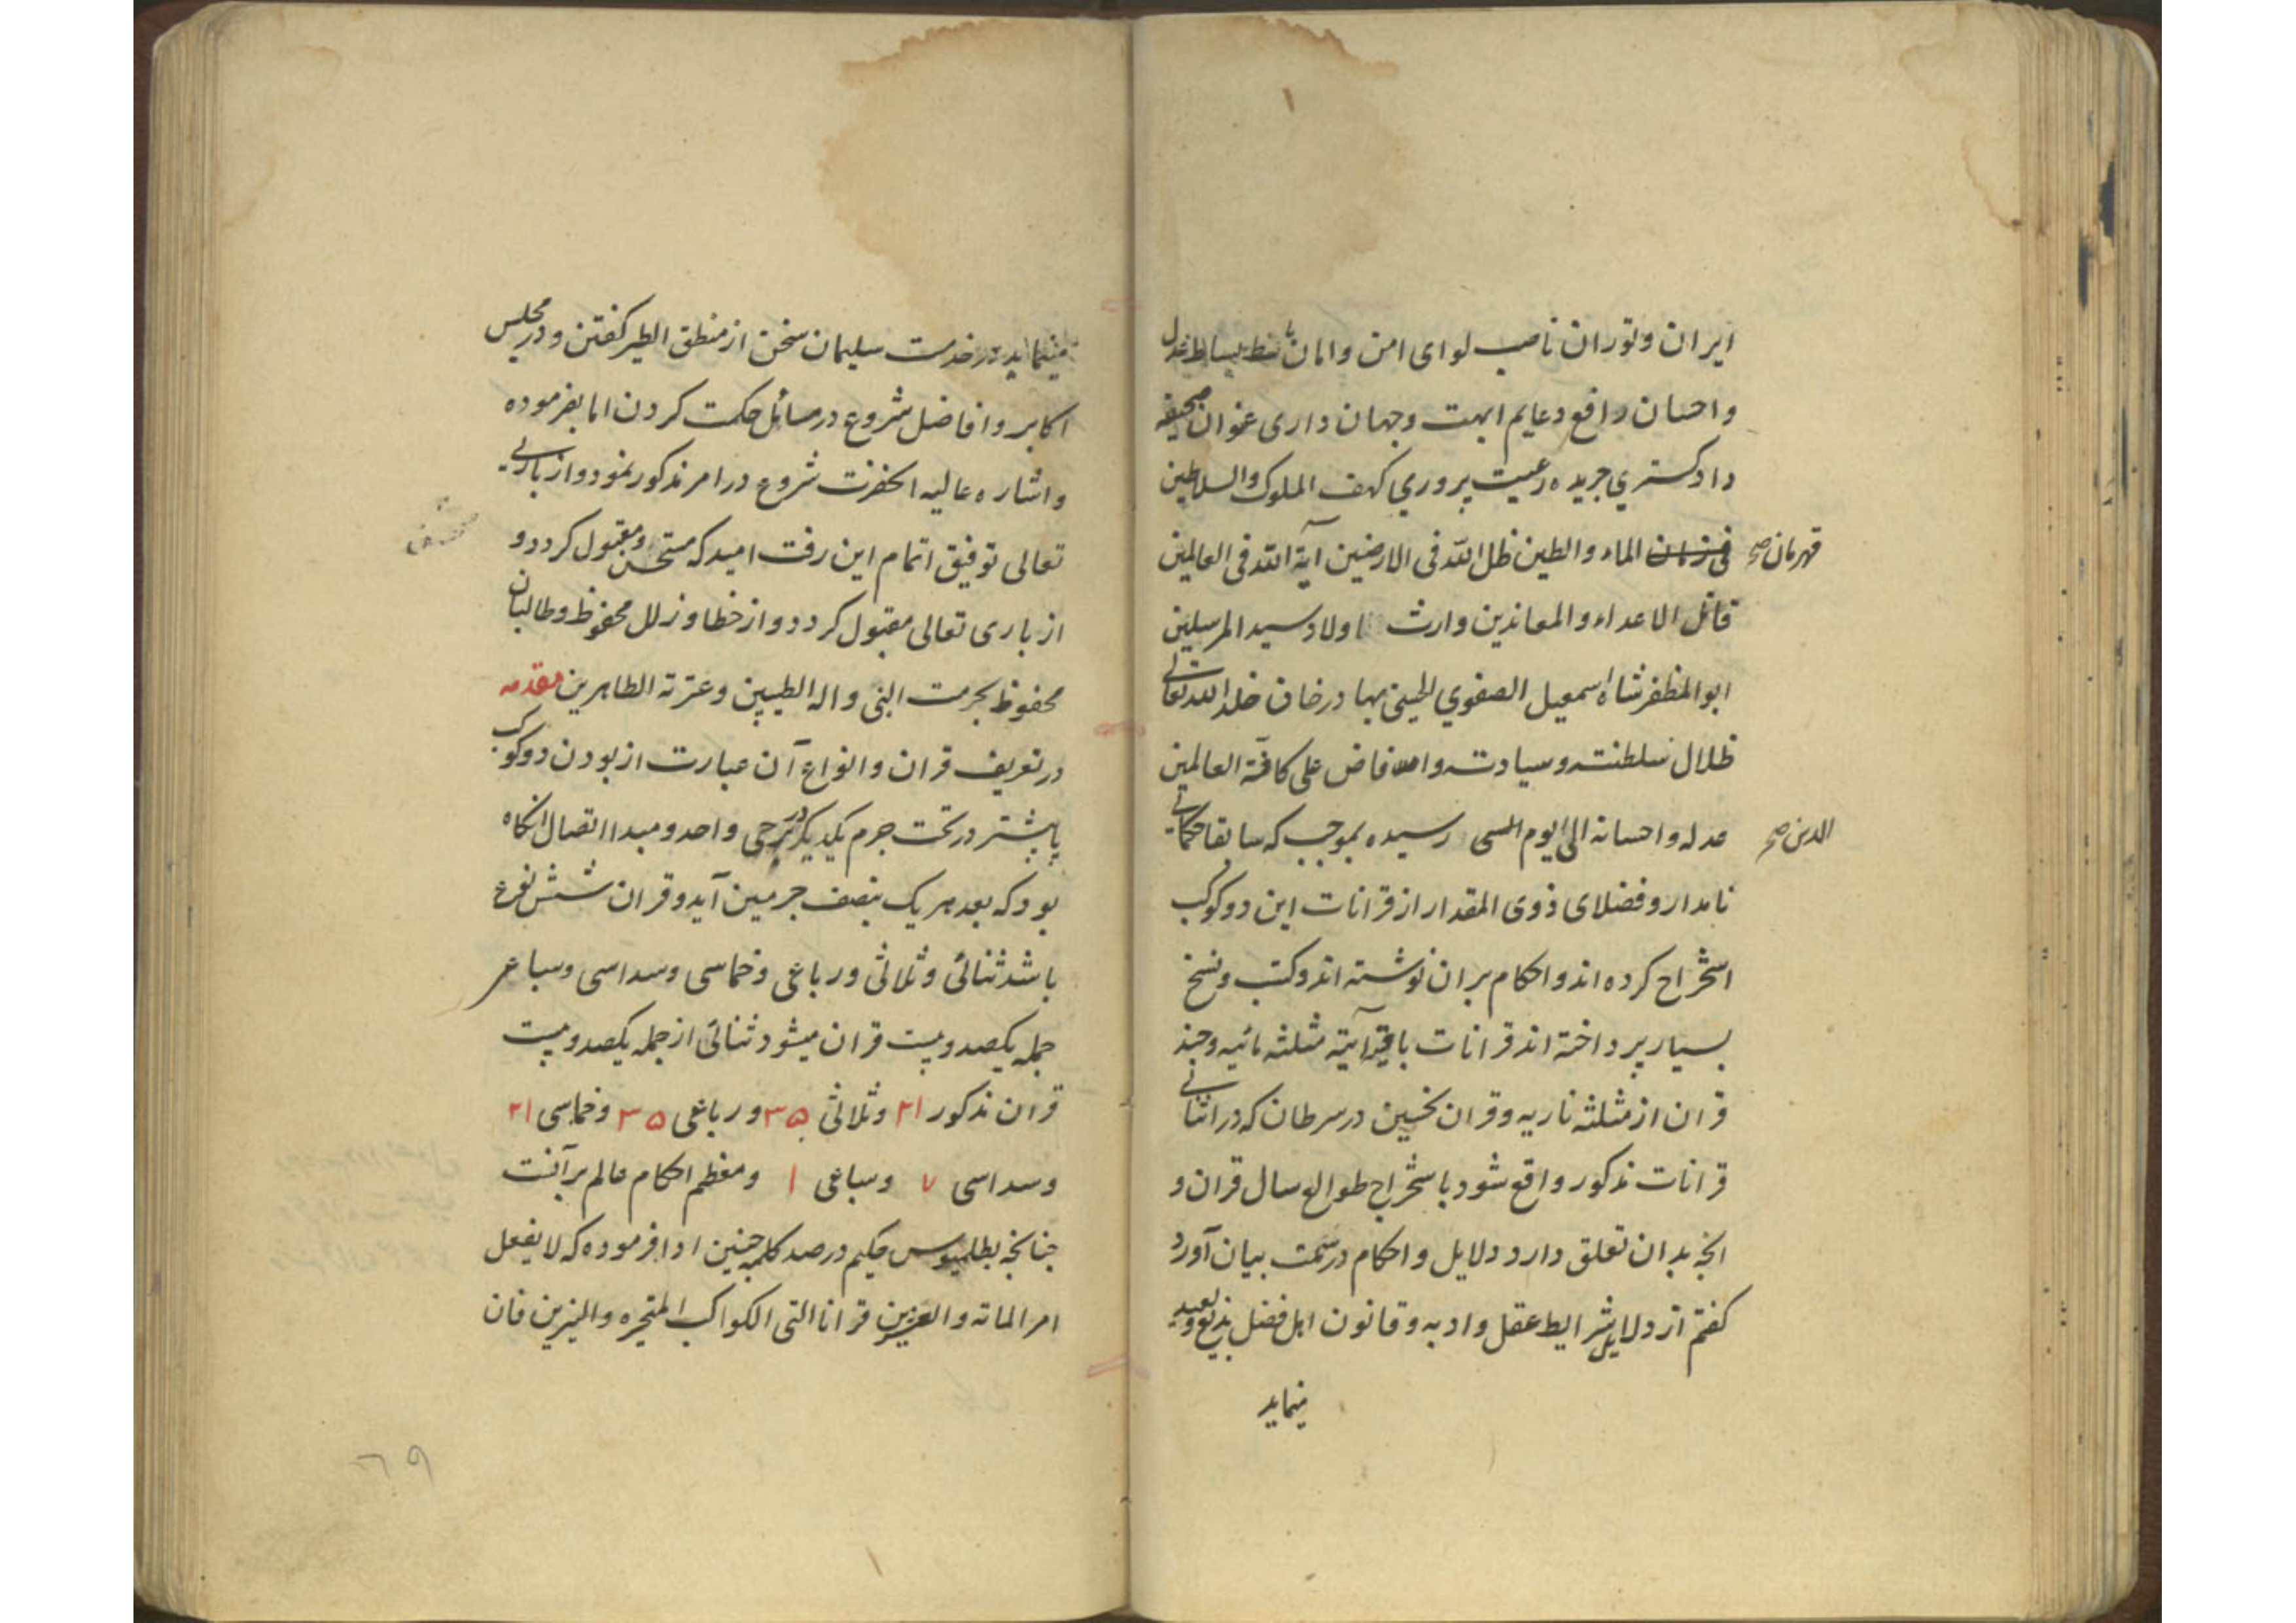 ایران و توران ناصب لوای امن و امان باسط بساط عدل
و احسان رافع دعایم ابهت و جهان داری عنوان صحیفه
داد کستری جریده رعیت پروری کهف الملوک والسلاطین
قهرمان صح الماء والطین ظل الله فی الارضین آیة الله فی العالمین
قاتل الاعداء و المعاندین وارث اولاد سید المرسلین
ابو المظفر شاه اسمعیل الصفوی الحسینی بهادر خان خلد الله تعالی
ظلال سلطنته و سیادته و افاض علی کافة العالمین
عدله و احسانه الی یوم الدین صح رسیده بموجب که سابقا حکمای
نامدار و فضلای ذوی المقدار از قرانات این دو کوکب
استخراج کرده اند و احکام بران نوشته اند و کتب و نسخ
بسیار پرداخته اند قرانات باقیه آتیه مثلثه مائیه و چند
قران از مثلثه ناریه و قران نحسین در سرطان که در اثنای
قرانات مذکور واقع شود باستخراج طوالع سال قران و
انچه بدان تعلق دارد دلایل و احکام در سمت بیان آورد
کفتم از دلایل شرایط عقل و ادب و قانون اهل فضل بدیع و بعید
مینماید
مینماید در خدمت سلیمان سخن از منطق الطیر کفتن و در مجلس
اکابر و افاضل شروع در مسائل حکمت کردن اما بفرموده
و اشاره عالیه انحضرت شروع در امر مذکور نمود و از باری
تعالی توفیق اتمام این رفت امید که مستحسن و مقبول کردد و
از باری تعالی مقبول کردد و از خطا و زلل محفوظ و طالبان
محفوظ بحرمت النبی و اله الطیبین و عترته الطاهرین مقدمه
در تعریف قران و انواع آن عبارت از بودن دو کوکب
یا بیشتر در تحت جرم یکدیکر در برجی واحد و مبدا اتصال انکاه
بود که بعد هر یک بنصف جرمین آید و قران شش نوع
باشد ثنائی و ثلاثی و رباعی و خماسی و سداسی و سباعی
جمله یکصد و بیست قران میشود ثنائی از جمله یکصد و بیست
قران مذکور ۲۱ و ثلاثی ۳۵ و رباعی ۳۵ و خماسی ۲۱
و سداسی ۷ و سباعی ۱ و معظم احکام عالم برآنست
جنانچه بطلمیوس حکیم در صد کلمه چنین ادا فرموده که لا یفعل
امر المائة والعشرین قرانا التی الکواکب المتحیره والنیرین فان
۶۹